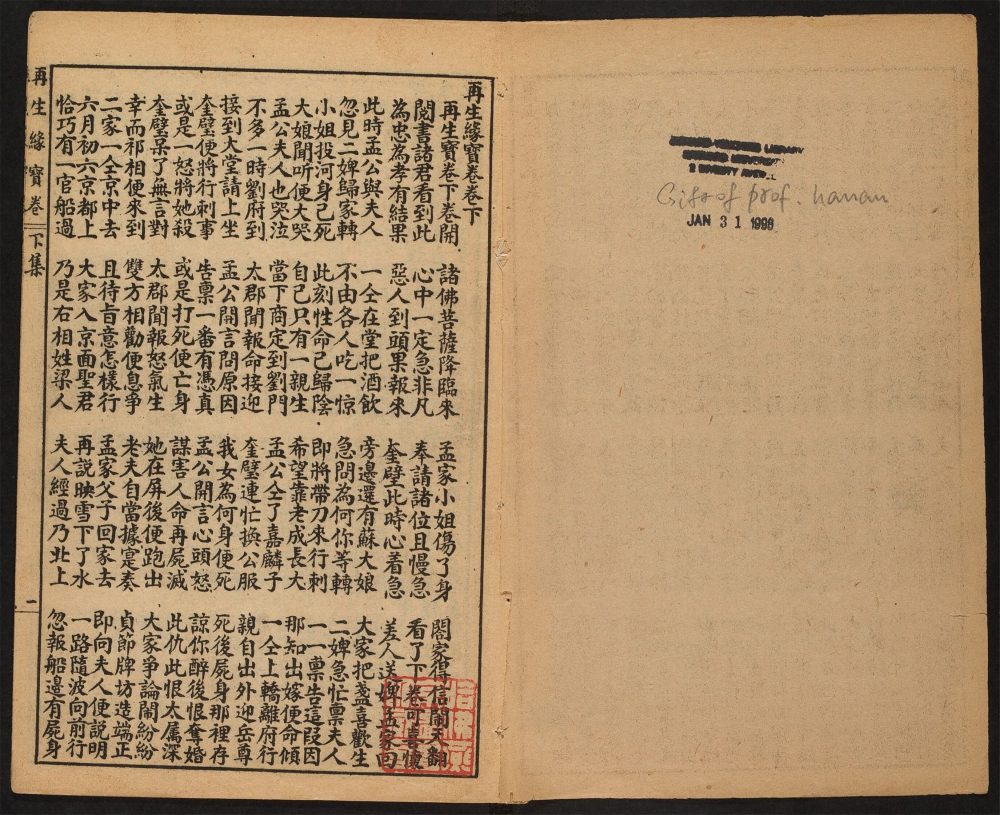 再生緣寶卷卷下
再生寶卷下卷開　諸佛菩薩降臨來　孟家小姐傷了身　閤家得信鬧天翻
閱書諸君看到此　心中一定急非凡　奉請諸位且慢急　看了下卷可喜懷
為忠為孝有結果　惡人到頭果報來　奎璧此時心着急　差人送婢孟家回
此時孟公與夫人　一仝在堂把酒飲　旁邊還有蘇大娘　大家把盞喜歡生
忽見二婢歸家轉　不由各人吃一惊　急問為何你等轉　二婢急忙禀夫人
小姐投河身已死　此刻性命已歸陰　即將帶刀來行刺　一一禀告這叚因
大娘聞听便大哭　自己只有一親生　希望靠老成長大　那知出嫁便命傾
孟公夫人也哭泣　當下商定到劉門　孟公仝了嘉麟子　一仝上轎離府行
不多一時劉府到　太郡聞報命接迎　奎璧連忙換公服　親自出外迎岳尊
接到大堂請上坐　孟公開言問原因　我女為何身便死　死後屍身那裡存
奎璧便將行刺事　告禀一番有憑真　孟公開言心頭怒　諒你醉後恨奪婚
或是一怒將她殺　或是打死便亡身　謀害人命再屍滅　此仇此恨太属深
奎璧呆了無言對　太郡聞報怒氣生　她在屏後便跑出　大家爭論鬧紛紛
幸而祁相便來到　雙方相勸便息爭　老夫自當據寔奏　貞節牌坊造端正
二家一仝京中去　且待旨意怎樣行　孟家父子回家去　即向夫人便説明
六月初六京都上　大家入京面聖君　再説映雪下了水　一路隨波向前行
恰巧有一官船過　乃是右相姓梁人　夫人經過乃北上　忽報船邊有屍身
再生緣寶卷　下集　一
HARVARD-YENCHING LIBRARY
HARVARD UNIVERSITY
2 DIVINITY
Gift of prof. Hanan
JAN 31 1996